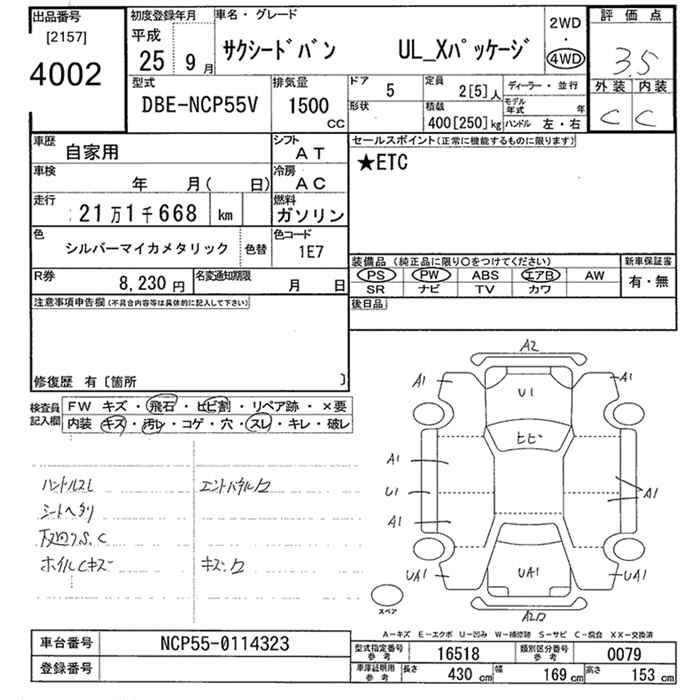 出品番号
[2157]
4002
初度登録年月
平成
25 9月
車名・グレード
サクシードバン UL_Xパッケージ
2WD
・
4WD
評価点
3.5
外装 内装
C C
型式
DBE-NCP55V
排気量
1500
CC
ドア 5
形状
定員 2[5]人
積載
400[250]kg
ディーラー・並行
モデル年式 年
ハンドル 左・右
車歴 自家用
シフト AT
車検 年 月( 日)
冷房 AC
走行 21万1千668 km
燃料 ガソリン
色 シルバーマイカメタリック 色替
色コード 1E7
R券 8,230円
名変通知期限 月 日
セールスポイント(正常に機能するものに限ります)
★ETC
装備品(純正品に限り○をつけてください)
PS PW ABS エアB AW
SR ナビ TV カワ
新車保証書
有・無
後日品
注意事項申告欄(不具合内容等は具体的に記入して下さい)
修復歴 有〔箇所 〕
検査員記入欄
FW キズ・飛石・ヒビ割・リペア跡・×要
内装 キズ・汚レ・コゲ・穴・スレ・キレ・破レ
ハンドルスレ
シートヘタリ
ホイルCキズ
A2
A1 A1
U1
ヒビ
A1
U1 A1
A1
UA1 UA1 UA1
スペア
A-キズ E-エクボ U-凹み W-補修跡 S-サビ C-腐食 XX-交換済
車台番号 NCP55-0114323
登録番号
型式指定番号参考 16518
類別区分番号参考 0079
車庫証明用参考 長さ 430 cm 幅 169 cm 高さ 153 cm